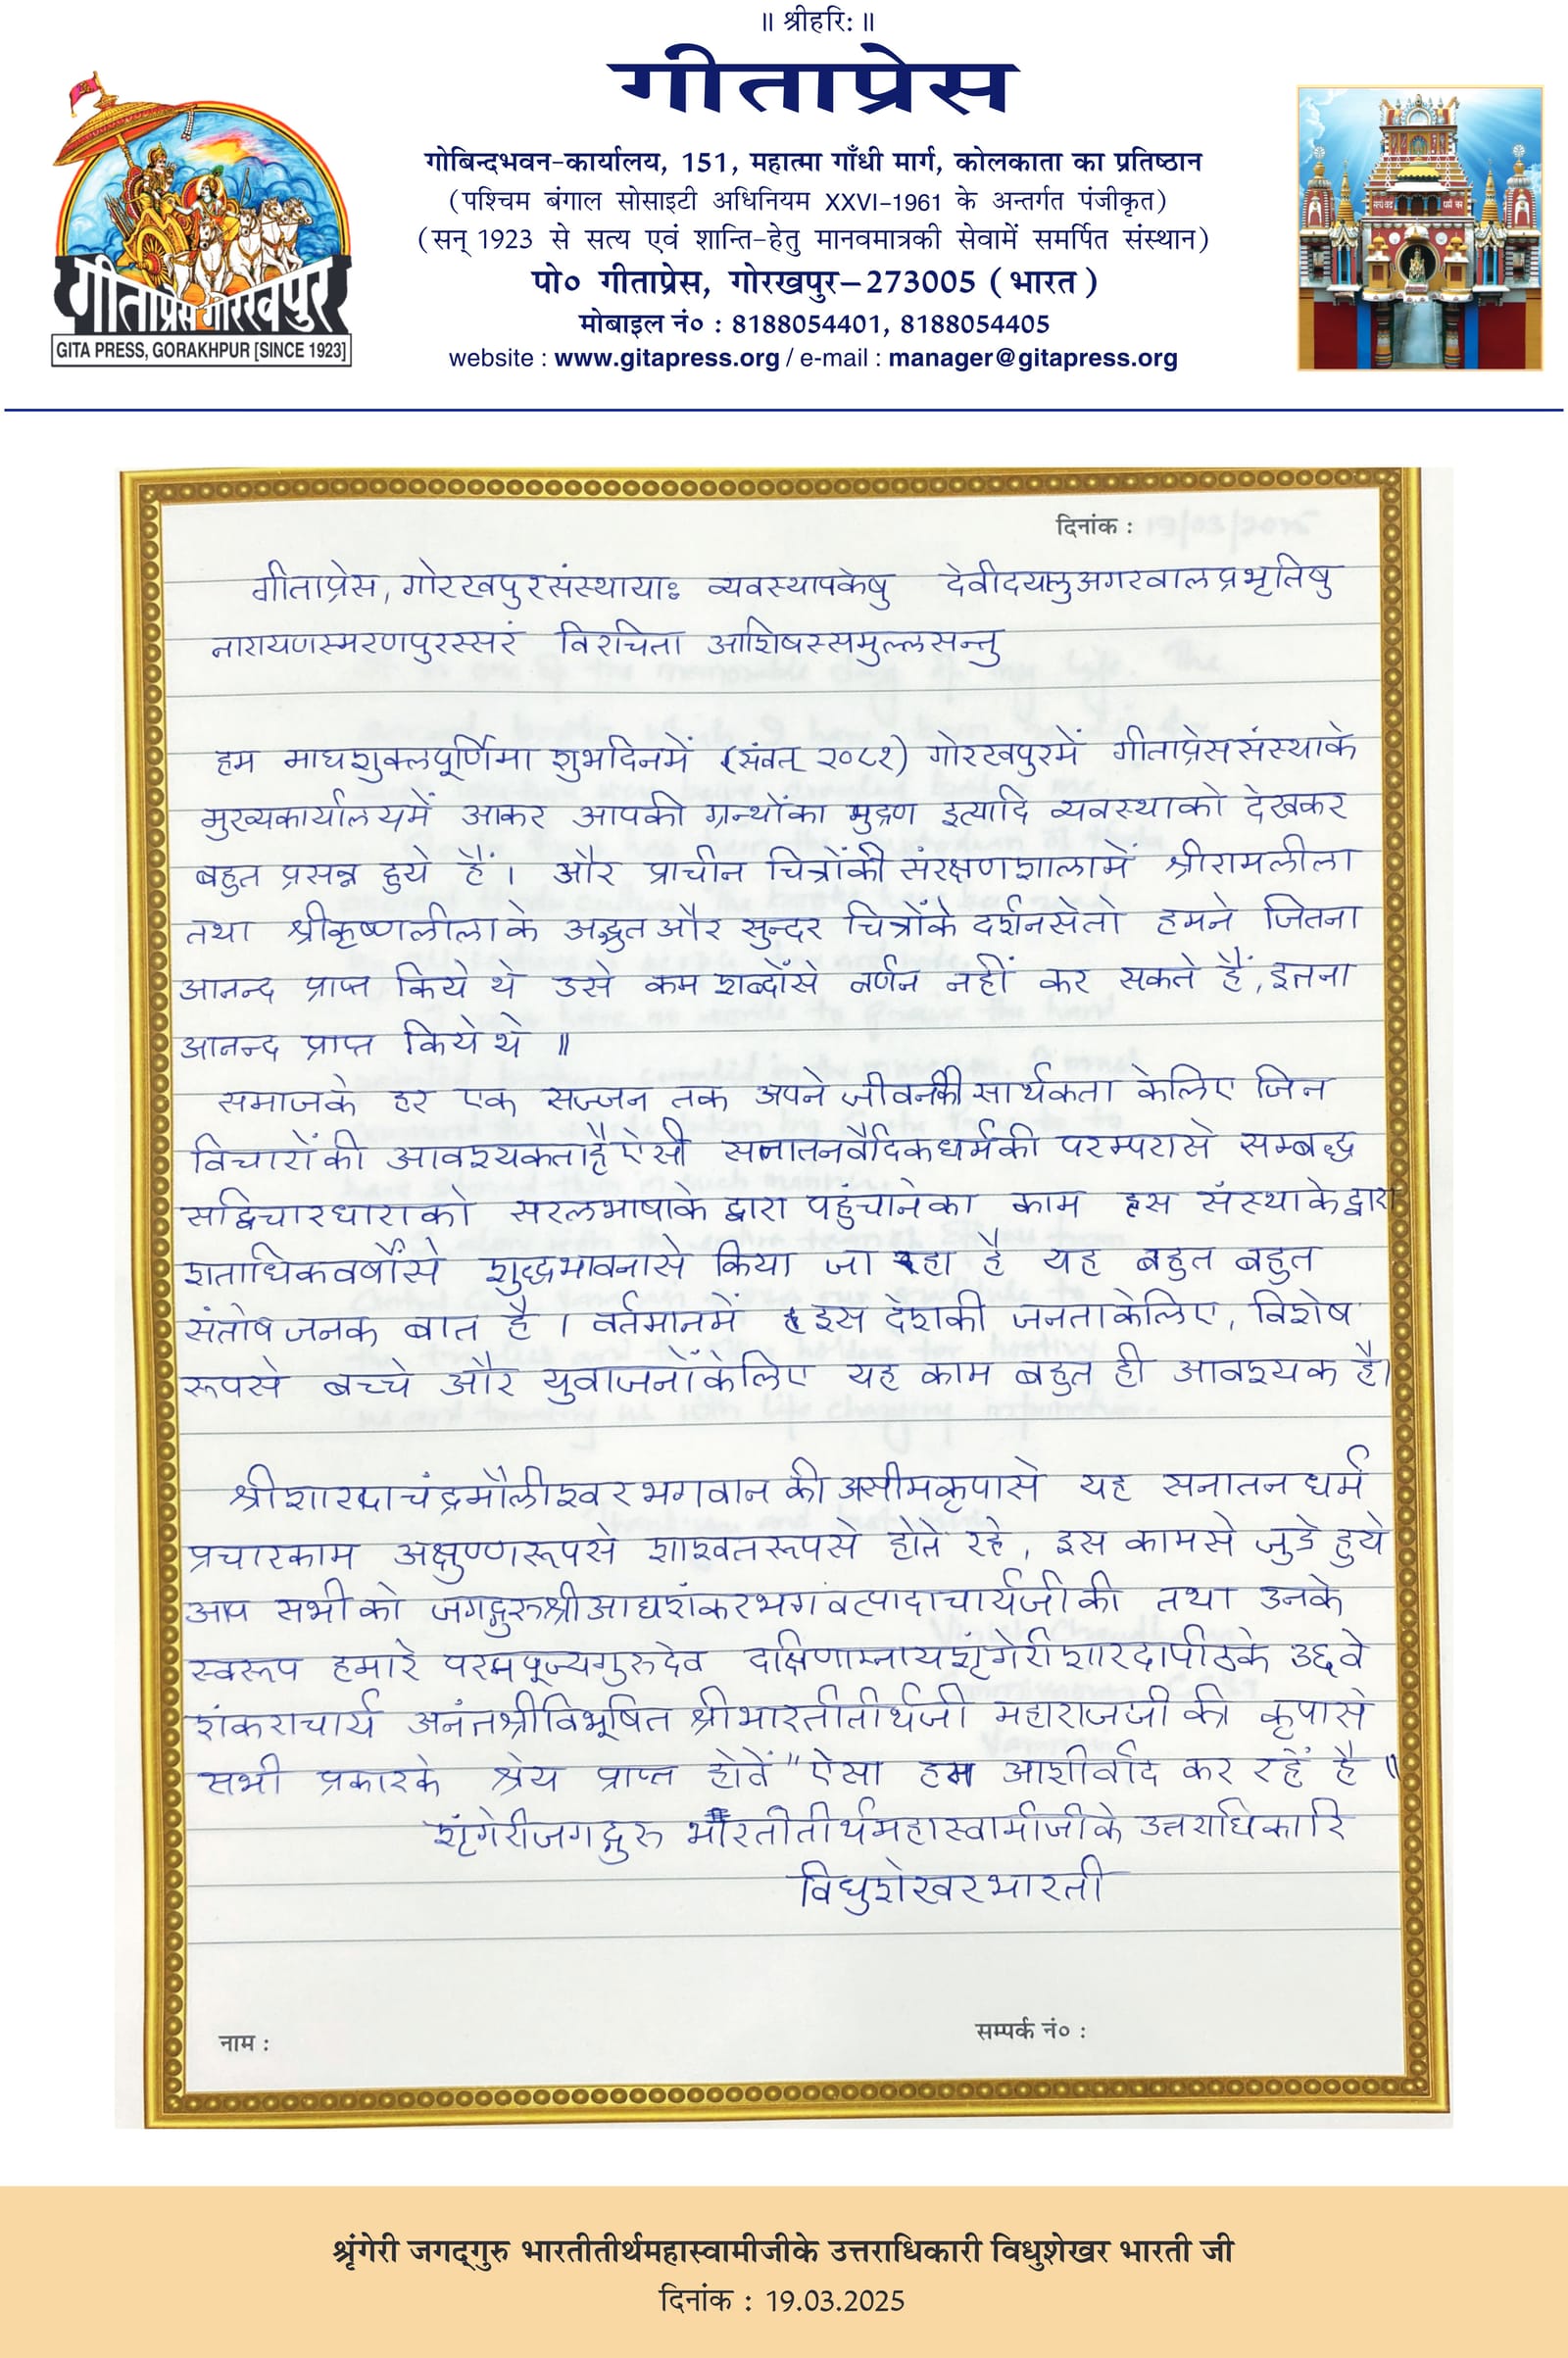 ॥ श्रीहरिः ॥
गीताप्रेस
गोबिन्दभवन-कार्यालय, 151, महात्मा गाँधी मार्ग, कोलकाता का प्रतिष्ठान
(पश्चिम बंगाल सोसाइटी अधिनियम XXVI-1961 के अन्तर्गत पंजीकृत)
(सन् 1923 से सत्य एवं शान्ति-हेतु मानवमात्रकी सेवामें समर्पित संस्थान)
पो० गीताप्रेस, गोरखपुर–273005 ( भारत )
मोबाइल नं० : 8188054401, 8188054405
website : www.gitapress.org / e-mail : manager@gitapress.org
गीताप्रेस गोरखपुर
GITA PRESS, GORAKHPUR [SINCE 1923]
दिनांक :
गीताप्रेस, गोरखपुरसंस्थायाः व्यवस्थापकेषु देवीदयालुअगरवालप्रभृतिषु
नारायणस्मरणपुरस्सरं विरचिता आशिषस्समुल्लसन्तु
हम माघशुक्लपूर्णिमा शुभदिनमें (संवत् २०८१) गोरखपुरमें गीताप्रेससंस्थाके
मुख्यकार्यालयमें आकर आपकी ग्रन्थोंका मुद्रण इत्यादि व्यवस्थाको देखकर
बहुत प्रसन्न हुये हैं। और प्राचीन चित्रोंकी संरक्षणशालामें श्रीरामलीला
तथा श्रीकृष्णलीलाके अद्भुत और सुन्दर चित्रोंके दर्शनसेतो हमने जितना
आनन्द प्राप्त किये थे उसे कम शब्दोंसे वर्णन नहीं कर सकते हैं, इतना
आनन्द प्राप्त किये थे ॥
समाजके हर एक सज्जन तक अपने जीवनकी सार्थकता केलिए जिन
विचारोंकी आवश्यकताहै ऐसी सनातनवैदिकधर्मकी परम्परासे सम्बद्ध
सद्विचारधाराको सरलभाषाके द्वारा पहुंचानेका काम इस संस्थाकेद्वारा
शताधिकवर्षोंसे शुद्धभावनासे किया जा रहा है यह बहुत बहुत
संतोषजनक बात है। वर्तमानमें इस देशकी जनताकेलिए, विशेष
रूपसे बच्चे और युवाजनोंकेलिए यह काम बहुत ही आवश्यक है।
श्रीशारदाचंद्रमौलीश्वरभगवानकी असीमकृपासे यह सनातनधर्म
प्रचारकाम अक्षुण्णरूपसे शाश्वतरूपसे होते रहे, इस कामसे जुडे हुये
आप सभीको जगद्गुरुश्रीआद्यशंकरभगवत्पादाचार्यजीकी तथा उनके
स्वरूप हमारे परमपूज्यगुरुदेव दक्षिणाम्नायशृंगेरीशारदापीठके ३६वे
शंकराचार्य अनंतश्रीविभूषित श्रीभारतीतीर्थजी महाराजजीकी कृपासे
सभी प्रकारके श्रेय प्राप्त होवें" ऐसा हम आशीर्वाद कर रहें है ॥
शृंगेरीजगद्गुरु भारतीतीर्थमहास्वामीजीके उत्तराधिकारि
विधुशेखरभारती
नाम :
सम्पर्क नं० :
श्रृंगेरी जगद्‌गुरु भारतीतीर्थमहास्वामीजीके उत्तराधिकारी विधुशेखर भारती जी
दिनांक : 19.03.2025